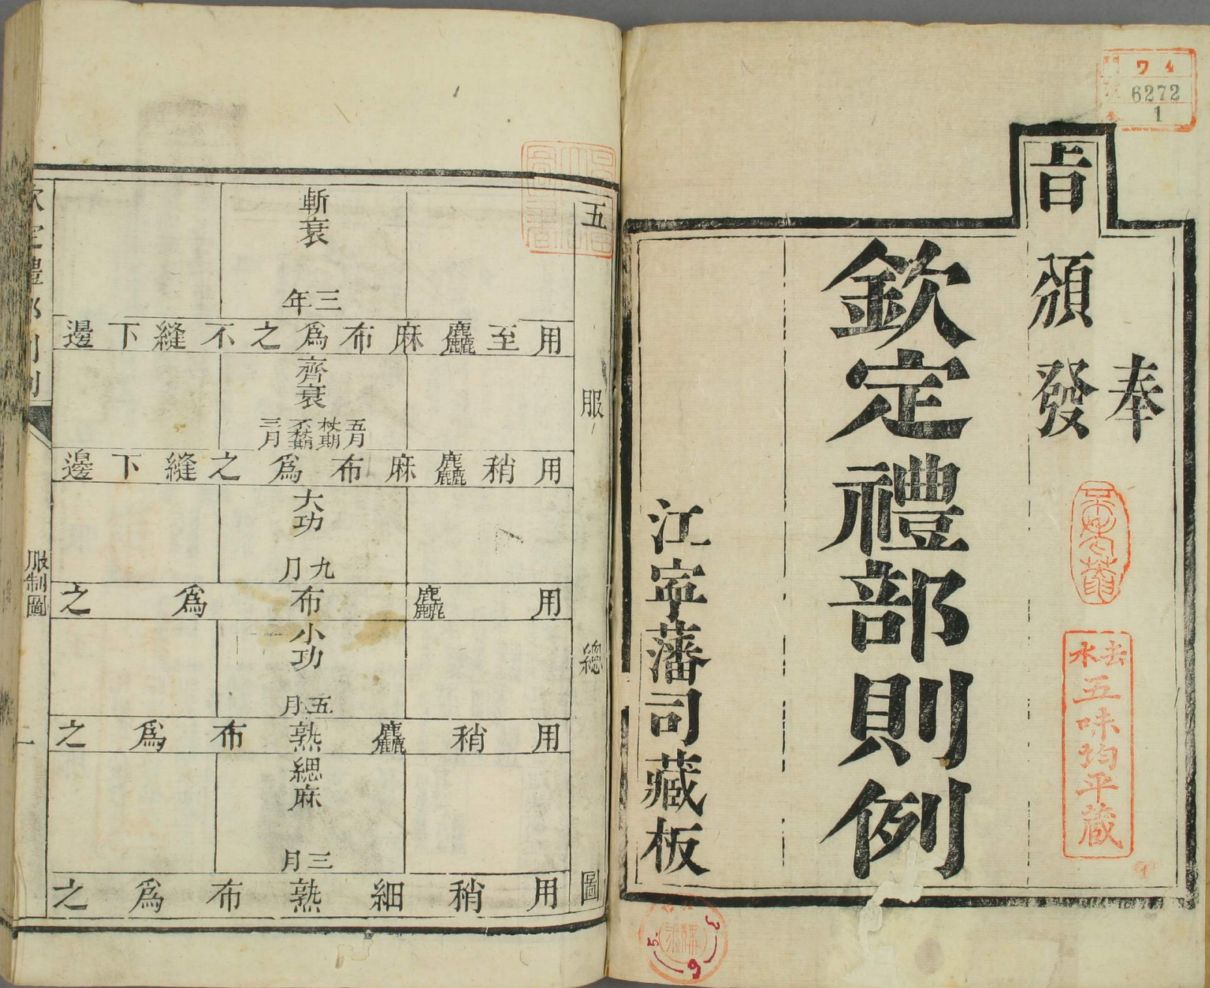 ワ4
6272
1
奉
旨
頒發
欽定禮部則例
江寜藩司藏板
去水
五味均平蔵
五服總圖
斬衰
三年
用至麤麻布為之不縫下邊
齊衰
五月
杖期
不杖期
三月
用稍麤麻布為之縫下邊
大功
九月
用麤布為之
小功
五月
用稍麤熟布為之
緦麻
三月
用稍細熟布為之
欽定禮部則例
服制圖
一